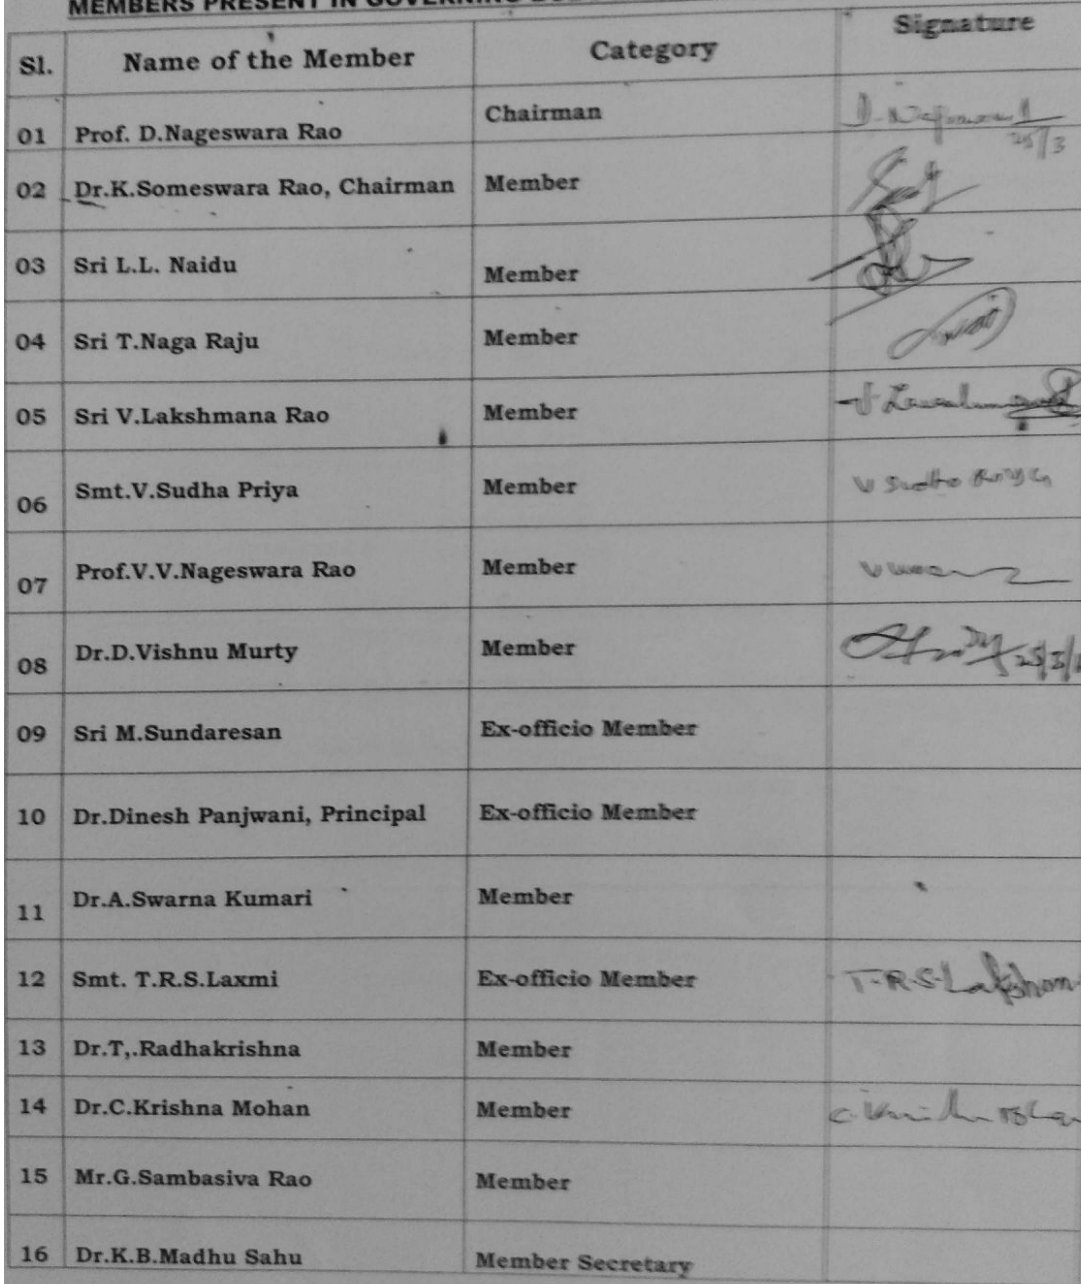 MEMBERS PRESENT IN GOVERNING
Sl. Name of the Member Category Signature
01 Prof. D.Nageswara Rao Chairman
25/3
02 Dr.K.Someswara Rao, Chairman Member
03 Sri L.L. Naidu Member
04 Sri T.Naga Raju Member
05 Sri V.Lakshmana Rao Member
06 Smt.V.Sudha Priya Member V Sudha Priya
07 Prof.V.V.Nageswara Rao Member
08 Dr.D.Vishnu Murty Member
09 Sri M.Sundaresan Ex-officio Member
10 Dr.Dinesh Panjwani, Principal Ex-officio Member
11 Dr.A.Swarna Kumari Member
12 Smt. T.R.S.Laxmi Ex-officio Member T.R.S.Lakshm
13 Dr.T,.Radhakrishna Member
14 Dr.C.Krishna Mohan Member
15 Mr.G.Sambasiva Rao Member
16 Dr.K.B.Madhu Sahu Member Secretary